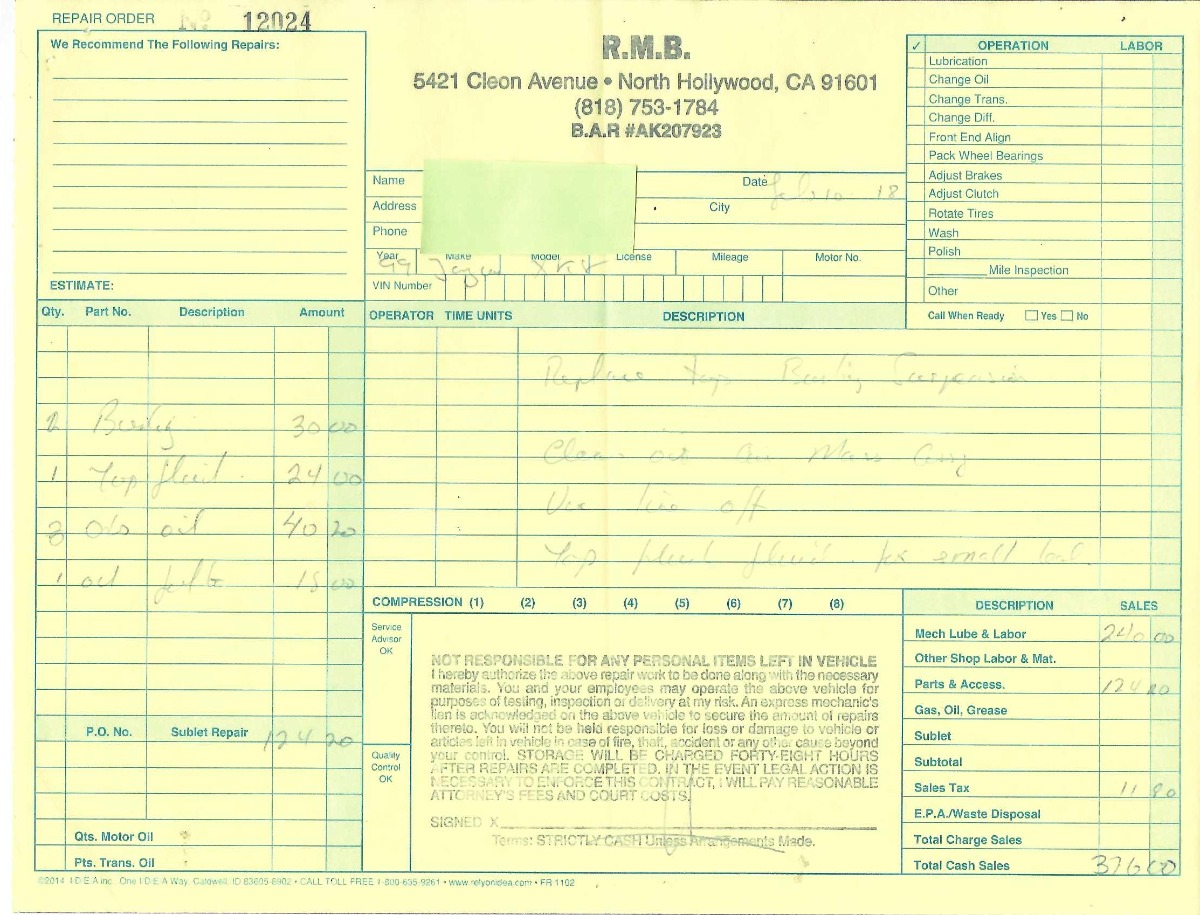 REPAIR ORDER Nº 12024
We Recommend The Following Repairs:
ESTIMATE:
R.M.B.
5421 Cleon Avenue • North Hollywood, CA 91601
(818) 753-1784
B.A.R #AK207923
Name
Date 18
Address
City
Phone
Year Make Model License Mileage Motor No.
99
VIN Number
✓ OPERATION LABOR
Lubrication
Change Oil
Change Trans.
Change Diff.
Front End Align
Pack Wheel Bearings
Adjust Brakes
Adjust Clutch
Rotate Tires
Wash
Polish
Mile Inspection
Other
Call When Ready Yes No
Qty. Part No. Description Amount
30 00
1 Top fluid 24 00
oil 40 20
1 oil 00
P.O. No. Sublet Repair 124 20
Qts. Motor Oil
Pts. Trans. Oil
OPERATOR TIME UNITS DESCRIPTION
Replace Top Suspension
Clean out air Mass
off
Top fluid fluid fix small
COMPRESSION (1) (2) (3) (4) (5) (6) (7) (8)
Service
Advisor
OK
Quality
Control
OK
NOT RESPONSIBLE FOR ANY PERSONAL ITEMS LEFT IN VEHICLE
I hereby authorize the above repair work to be done along with the necessary
materials. You and your employees may operate the above vehicle for
purposes of testing, inspection or delivery at my risk. An express mechanic's
lien is acknowledged on the above vehicle to secure the amount of repairs
thereto. You will not be held responsible for loss or damage to vehicle or
articles left in vehicle in case of fire, theft, accident or any other cause beyond
your control. STORAGE WILL BE CHARGED FORTY-EIGHT HOURS
AFTER REPAIRS ARE COMPLETED. IN THE EVENT LEGAL ACTION IS
NECESSARY TO ENFORCE THIS CONTRACT, I WILL PAY REASONABLE
ATTORNEY'S FEES AND COURT COSTS.
SIGNED X
Terms: STRICTLY CASH Unless Arrangements Made.
DESCRIPTION SALES
Mech Lube & Labor 240 00
Other Shop Labor & Mat.
Parts & Access. 124
Gas, Oil, Grease
Sublet
Subtotal
Sales Tax 11 80
E.P.A./Waste Disposal
Total Charge Sales
Total Cash Sales 376 00
©2014 I·D·E·A inc. One I·D·E·A Way, Caldwell, ID 83605-6902 • CALL TOLL FREE 1-800-635-9261 • www.relyonidea.com • FR 1102